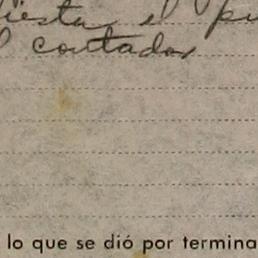 el
contador
lo que se dió por termina